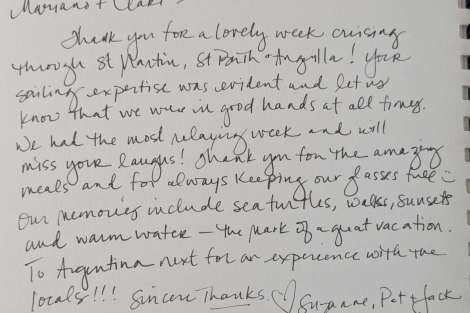 Mariano + Clari
Thank you for a lovely week cruising
through St Martin, St Barth + Anguilla! Your
sailing expertise was evident and let us
know that we were in good hands at all times.
We had the most relaxing week and will
miss your laughs! Thank you for the amazing
meals and for always keeping our glasses full
Our memories include sea turtles, walks, sunsets
and warm water — the mark of a great vacation.
To Argentina next for an experience with the
locals!!! Sincere Thanks. ♡ Suzanne, Pet + Jack